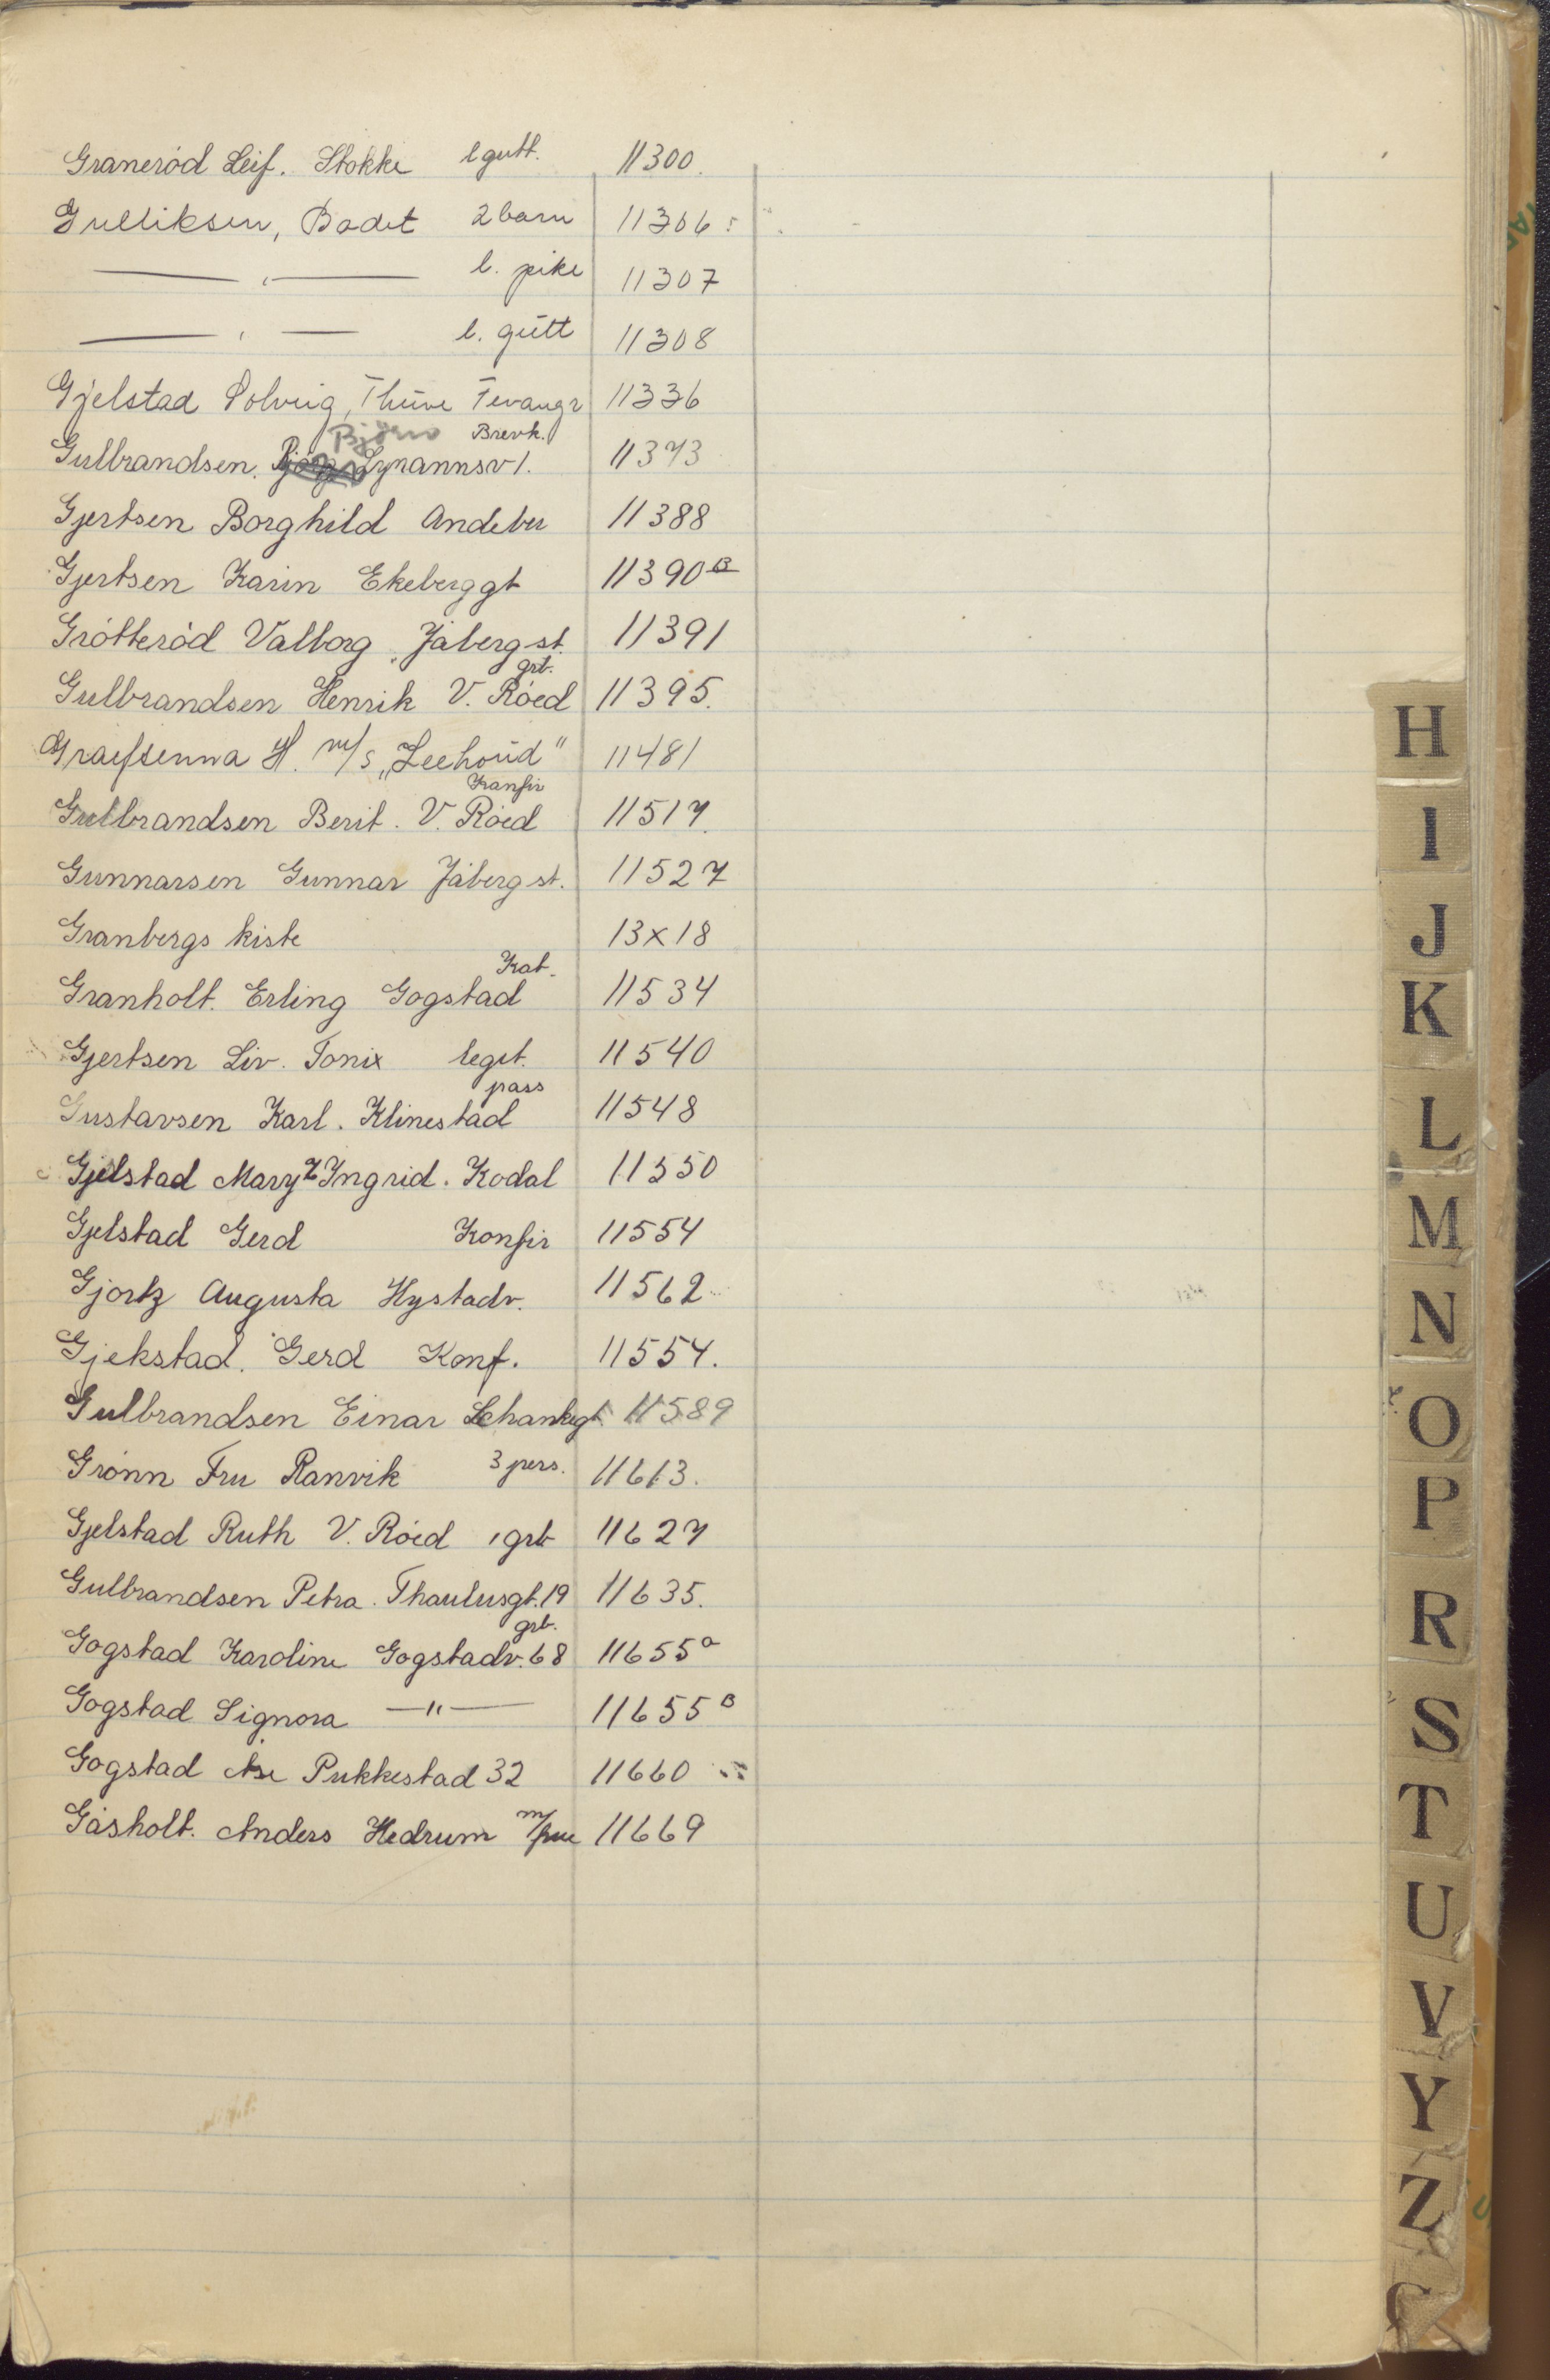 Granerød Leif. Stokke l gutt. 11300.
Gulliksen, Bodet 2 barn 11306
— „ — l. pike 11307
— „ — l. gutt 11308
Gjelstad Solveig, Thine Tevangr 11336
Bjørn Brevk.
Gulbrandsen. Lymannsv 1. 11373
Gjertsen Borghild Andebu 11388
Gjertsen Karin Ekeberggt 11390 B
Grøtterød Valborg Jåberg st. 11391
grb.
Gulbrandsen Henrik V. Røed 11395.
Graefsenna H. m/s „Zeehond" 11481
Konfir
Gulbrandsen Berit. V. Røed 11517.
Gunnarsen Gunnar Jåberg st. 11527
Granbergs kiste 13x18
Kat.
Granholt. Erling Gogstad 11534
Gjertsen Liv. Tonix legit. 11540
pass
Gustavsen Karl. Klinestad 11548
Gjelstad Mary & Ingrid. Kodal 11550
Gjelstad Gerd Konfir 11554
Gjortz Augusta Hystadv. 11562
Gjekstad. Gerd Konf. 11554.
Gulbrandsen Einar Schankegt. 11589
Grønn Fru Ranvik 3 pers. 11613.
Gjelstad Ruth V. Røed 1 grb 11627
Gulbrandsen Petra. Thaulusgt. 19 11635.
grb.
Gogstad Karoline Gogstadv. 68 11655 a
Gogstad Signora — " — 11655 B
Gogstad Åse Pukkestad 32 11660
Gåsholt. Anders Hedrum m/frue 11669
H
I
J
K
L
M
N
O
P
R
S
T
U
V
Y
Z